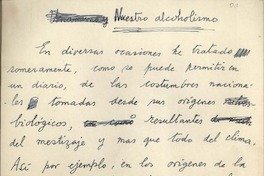 Nuestro alcoholismo
En diversas ocasiones he tratado
someramente, como se puede permitir en
un diario, de las costumbres naciona-
les tomadas desde sus orígenes
biológicos, resultantes
del mestizaje y mas que todo del clima.
Así por ejemplo, en los orígenes de la